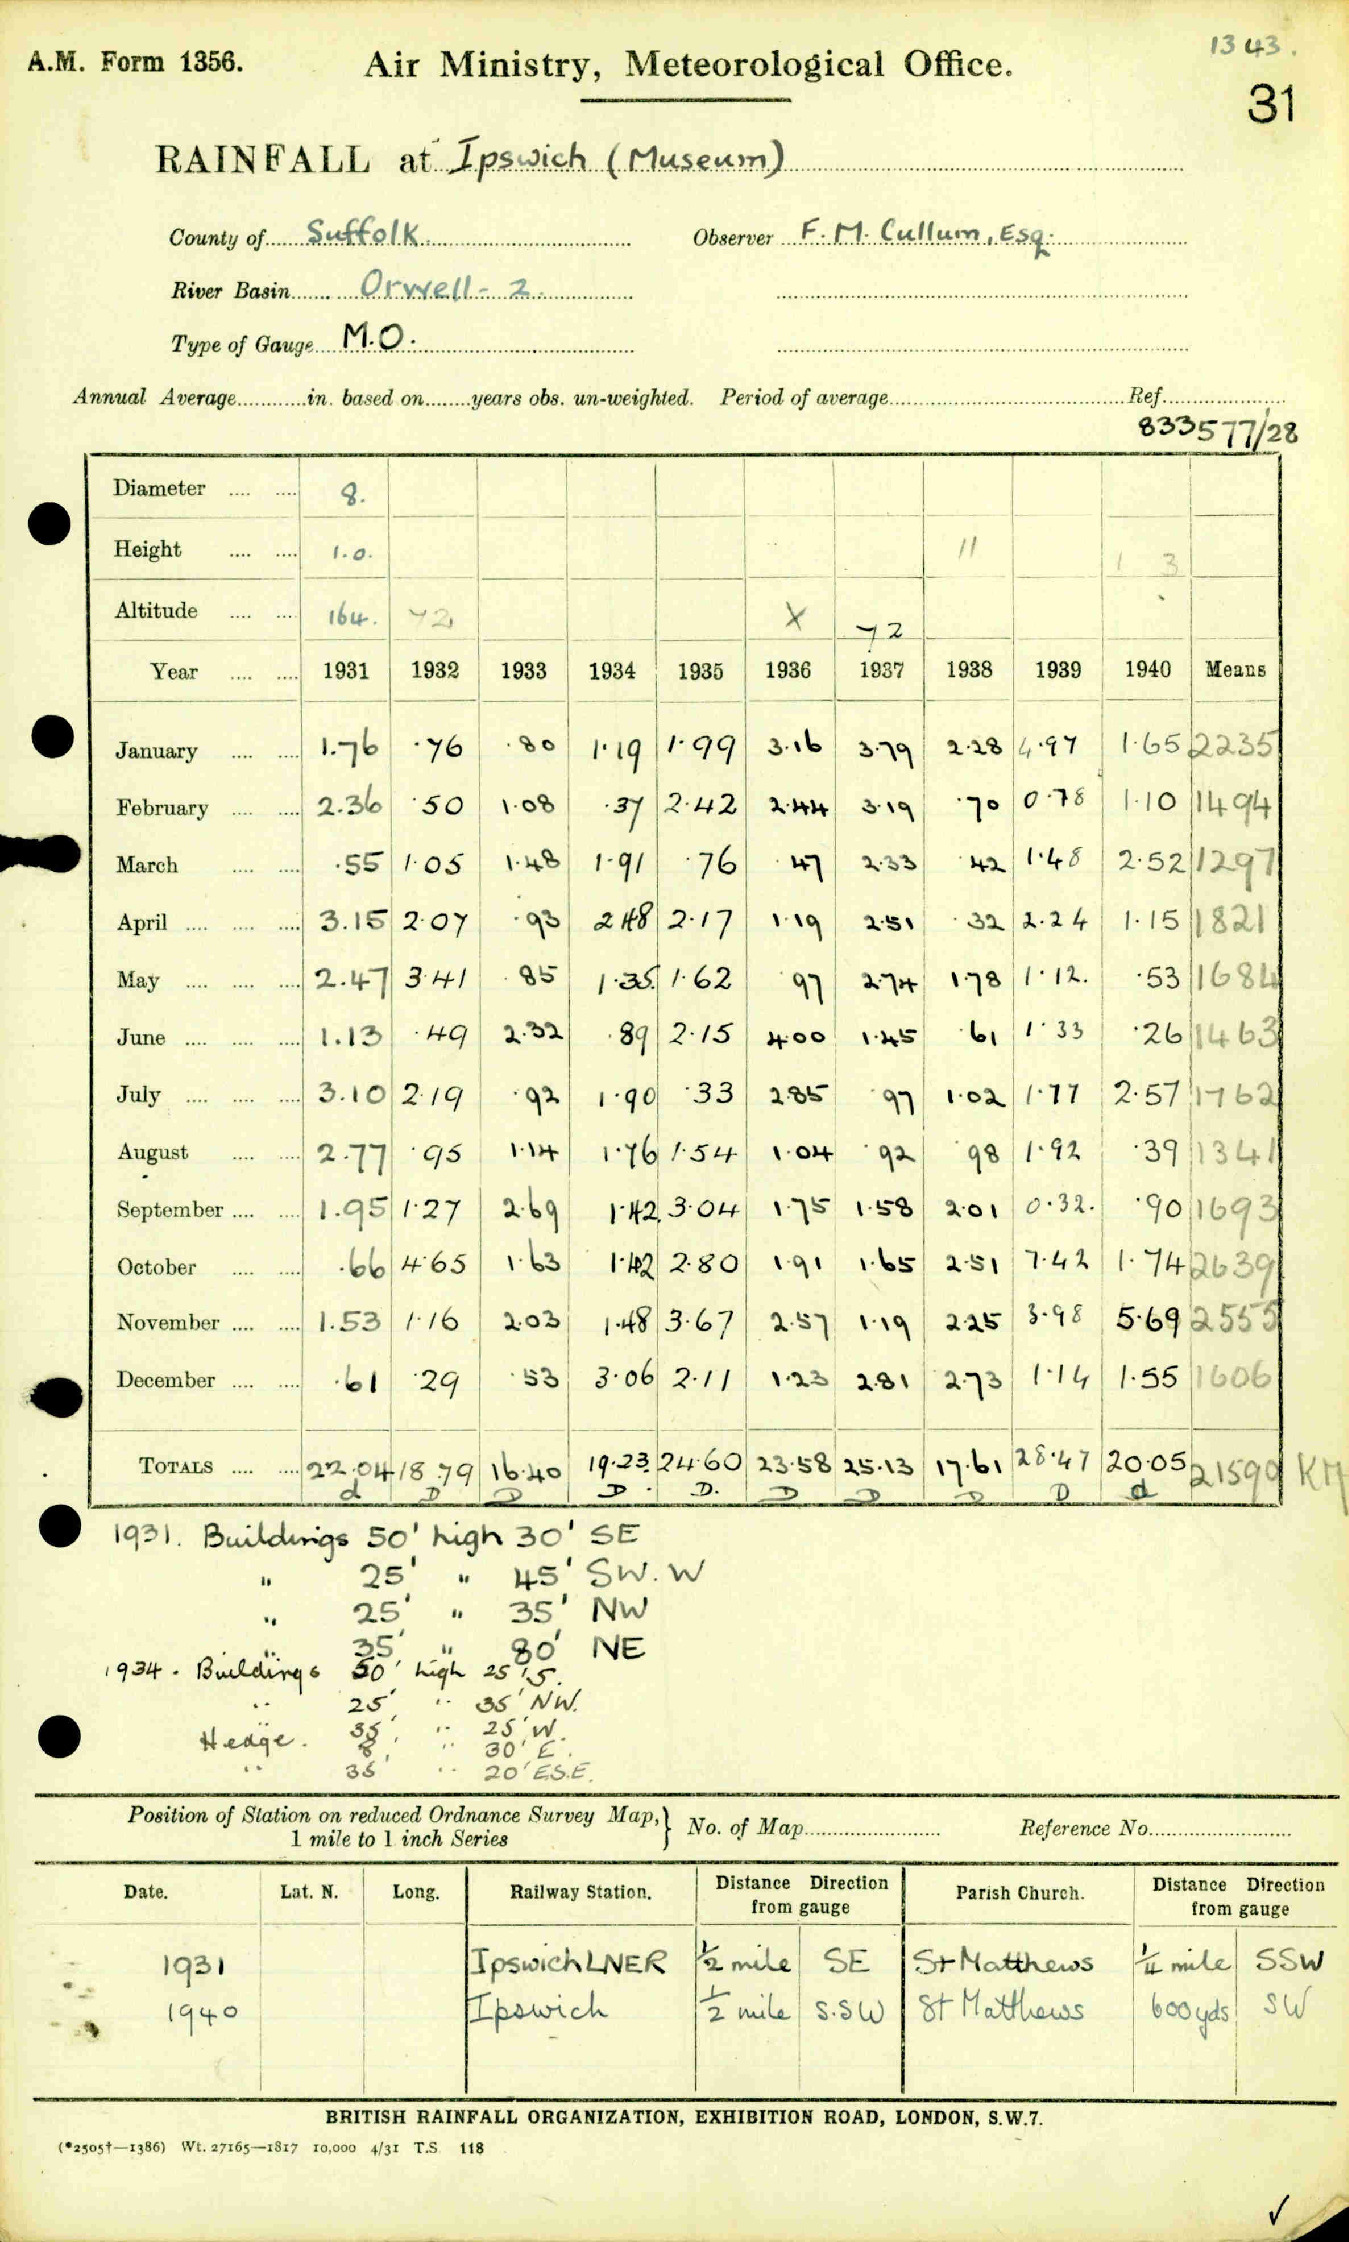 1343.
A.M. Form 1356. Air Ministry, Meteorological Office.
31
RAINFALL at Ipswich (Museum)
County of Suffolk Observer F. M. Cullum, Esq.
River Basin Orwell - 2.
Type of Gauge M.O.
Annual Average in. based on years obs. un-weighted. Period of average Ref.
833577/28
Diameter 8.
Height 1.0. 11 1 3
Altitude 164. 72 X 72
Year 1931 1932 1933 1934 1935 1936 1937 1938 1939 1940 Means
January 1.76 .76 .80 1.19 1.99 3.16 3.79 2.28 4.97 1.65 2235
February 2.36 .50 1.08 .37 2.42 2.44 3.19 .70 0.78 1.10 1494
March .55 1.05 1.48 1.91 .76 .47 2.33 .42 1.48 2.52 1297
April 3.15 2.07 .93 2.48 2.17 1.19 2.51 .32 2.24 1.15 1821
May 2.47 3.41 .85 1.35 1.62 .97 2.74 1.78 1.12. .53 1684
June 1.13 .49 2.32 .89 2.15 4.00 1.45 .61 1.33 .26 1463
July 3.10 2.19 .92 1.90 .33 2.85 .97 1.02 1.77 2.57 1762
August 2.77 .95 1.14 1.76 1.54 1.04 .92 .98 1.92 .39 1341
September 1.95 1.27 2.69 1.42 3.04 1.75 1.58 2.01 0.32. .90 1693
October .66 4.65 1.63 1.42 2.80 1.91 1.65 2.51 7.42 1.74 2639
November 1.53 1.16 2.03 1.48 3.67 2.57 1.19 2.25 3.98 5.69 2555
December .61 .29 .53 3.06 2.11 1.23 2.81 2.73 1.14 1.55 1606
TOTALS 22.04 18.79 16.40 19.23 24.60 23.58 25.13 17.61 28.47 20.05 21590 KM
d D D D D. D D D D d
1931. Buildings 50' high 30' SE
" 25' " 45' SW. W
" 25' " 35' NW
" 35' " 80' NE
1934. Buildings 50' high 25' S.
" 25' " 35' NW.
" 35' " 25' W.
Hedge. 8' " 30' E.
" 35' " 20' ESE.
Position of Station on reduced Ordnance Survey Map, } No. of Map Reference No.
1 mile to 1 inch Series
Date. Lat. N. Long. Railway Station. Distance Direction from gauge Parish Church. Distance Direction from gauge
1931 Ipswich LNER ½ mile SE St Matthews ¼ mile SSW
1940 Ipswich ½ mile S.SW St Matthews 600 yds SW
BRITISH RAINFALL ORGANIZATION, EXHIBITION ROAD, LONDON, S.W.7.
(*2505†—1386) Wt. 27165—1817 10,000 4/31 T.S. 118